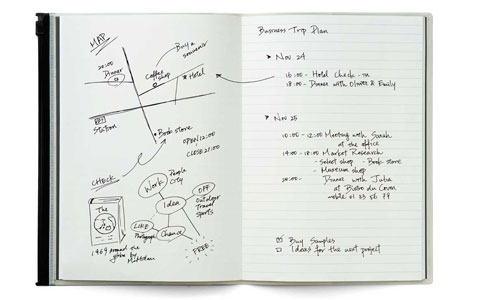 MAP
20:00
Dinner
Coffee
shop
Buy a
souvenir
Hotel
Station
Book store
OPEN 12:00
CLOSE 21:00
CHECK
The
1969 around the
globe by
Work
People
City
Idea
OFF
Outdoor
Travel
Sports
LIKE
Photograph
Chance
FREE
Business Trip Plan
Nov 24
16:00 - Hotel Check-in
18:00 - Dinner with Oliver & Emily
Nov 25
10:00 - 12:00 Meeting with Sarah
at the office
14:00 - 18:00 Market Research
- Select shop - Book store
- Museum shop
20:00 - Dinner with Julia
at Bistro du Coron
mobile 01 33 56 79
Buy Samples
Ideas for the next project